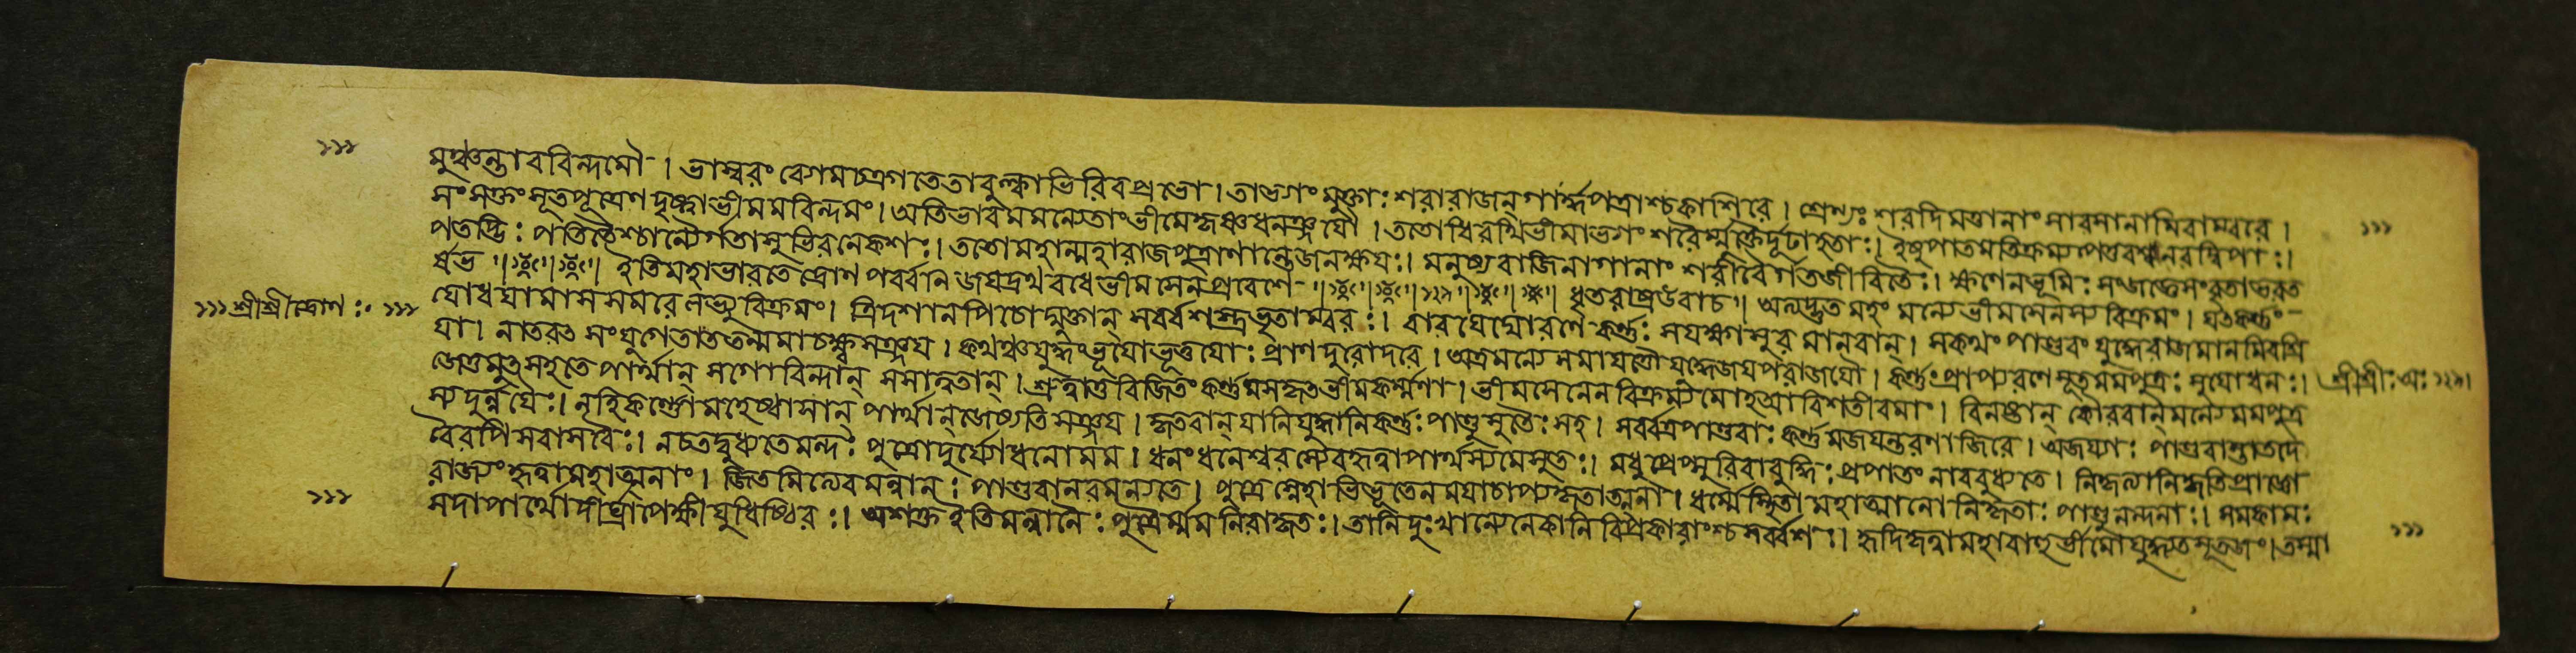 ১১১
মুঞ্চন্তাববিন্দমৌ। ভাস্বরং বেগমচত্রগতেতাবুল্কাভিরিবপ্রভো। তাভ্যাং মুক্তাঃ শরারাজন্ গার্দ্ধপত্রাশ্চকাশিরে। শ্রেণ্যঃ শরদিমত্তানাং সারসানামিবাম্বরে।
১১১
সংসক্তং সূতপূত্রেণ দৃষ্ট্বাভীমমবিন্দমং। অতিভাবমমন্যেতাং ভীমেকৃষ্ণধনঞ্জযৌ। ততোধিরথিভীমাভ্যাং শরৈর্ম্মুক্তৈর্দৃঢাহতাঃ। ইষুপাতমতিক্রম্যপেতুবশ্বানরদ্বিপাঃ।
পতদ্ভিঃ পতিতৈশ্চান্যৈর্গতাসুভিরনেকশঃ। ততোমহান্মহারাজপুত্রাণান্তেজনক্ষযঃ। মনুষ্যবাজিনাগানাং শরীবৈর্গতজীবিতৈঃ। ক্ষণেনভূমিঃ সংজজ্ঞেসংবৃতাভরত
র্ষভ ॥ ইতিমহাভারতে দ্রোণপর্ব্বনি জযদ্রথবধে ভীমসেনপ্রবেশে ॥১২৯॥ ধৃতরাষ্ট্রউবাচ॥ অত্যদ্ভুতমহং মন্যেভীমসেনস্যবিক্রমং। যৎকর্ণ্ণং
১১১ শ্রীশ্রীদ্রোণঃ ১১১
যোধযামাসসমরে লঘুবিক্রমং। ত্রিদশানপিচোদ্যুক্তান্ সর্ব্বশস্ত্রভৃতাম্বরঃ। বারযেদ্যোরণে কর্ণ্ণঃ সযক্ষাসুরমানবান্। সকথং পাণ্ডবং যুদ্ধেরাজমানমিবশ্রি
যা। নাতরৎ সংযুগেতাততন্মমাচক্ষ্বসঞ্জয। কথঞ্চযুদ্ধংভূযোভূত্তযোঃ প্রাণদুরোদরে। অত্রমন্যেসমাযত্তৌযদ্ধেজযপরাজযৌ। কর্ণ্ণংপ্রাপ্যরণেসূতমমপুত্রঃ সুযোধনঃ।
শ্রীশ্রীঃ অঃ ১২৯।
জেতুমুৎসহতে পার্থান্ সগোবিন্দান্ সসাত্বতান্। শ্রুত্বাতুবিজিতং কর্ণ্ণমসকৃৎভীমকর্ম্মণা। ভীমসেনেনবিক্রম্যমোহআবিশতীবমাং। বিনষ্টান্ কৌরবান্মন্যেমমপুত্র
স্যদুর্ন্নযৈঃ। নহিকর্ণ্ণোমহেষ্বাসান্ পার্থান্জেষ্যতিসঞ্জয। কৃতবান্ যানিযুদ্ধানিকর্ণ্ণঃ পাণ্ডুসুতৈঃ সহ। সর্ব্বত্রপাণ্ডবাঃ কর্ণ্ণমজযন্তরণাজিরে। অজয্যাঃ পাণ্ডবাস্তাতদে
বৈরপিসবাসবৈঃ। নচতদ্বুধ্যতেমন্দঃ পুত্রোদুর্য্যোধনোমম। ধনংধনেশ্বরস্যেবহৃত্বাপার্থস্যমেসুতঃ। মধুপ্রেপ্সুরিবাবুদ্ধিঃ প্রপাতং নাববুধ্যতে। নিকৃত্যানিকৃতিপ্রাজ্ঞো
রাজ্যংহৃত্বামহাত্মনাং। জিতমিত্যেবমন্বানঃ পাণ্ডবানবমন্যতে। পুত্রস্নেহাভিভূতেনমযাচাপ্যকৃতাত্মনা। ধর্ম্মেস্থিতামহাত্মানোনিকৃতাঃ পাণ্ডুনন্দনাঃ। সমকামঃ
১১১
সদাপার্থোদীর্ঘাপেক্ষীযুধিষ্ঠিরঃ। অশক্তইতিমন্বানৈঃ পুত্রৈর্ম্মমনিরাকৃতঃ। তানিদুঃখান্যেনেকানিবিপ্রকারাংশ্চসর্ব্বশঃ। হৃদিকৃত্বামহাবাহুর্ভীমোযুদ্ধ্যতসূতজং। তস্মা
১১১